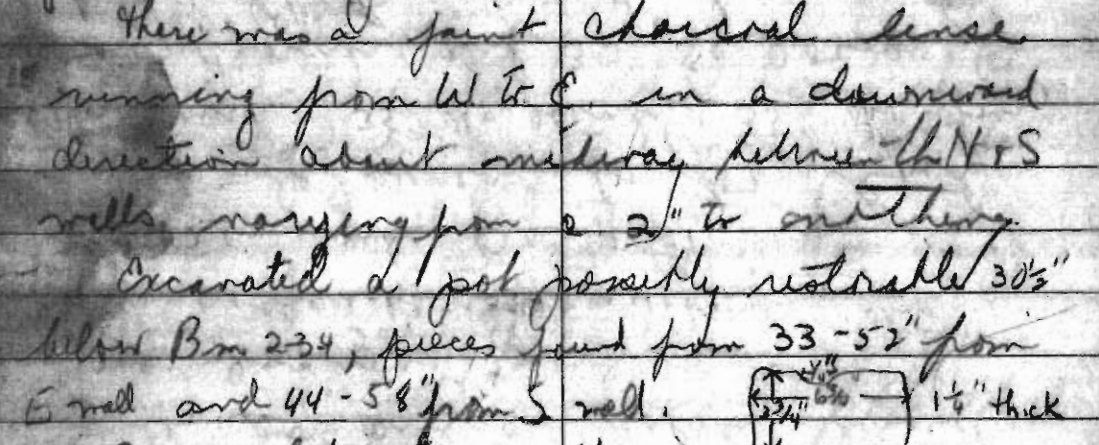 there was a faint charcoal lense
running from W to E. in a downward
direction about midway between th N + S
walls, ranging from 2" to
Excavated a pot possibly restorable 30½"
below Bm 234, pieces found from 33 - 52" from
E wall and 44 - 58" from S wall. 1¼" thick